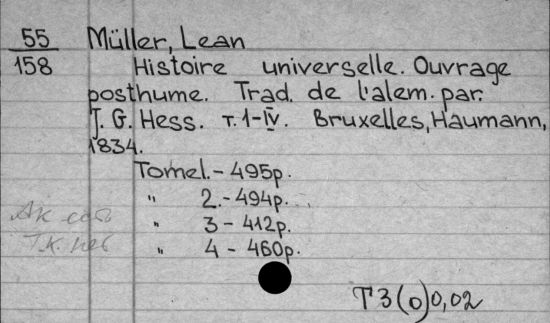 55 Müller, Lean
158 Histoire universelle. Ouvrage
posthume. Trad. de l'alem. par.
J. G. Hess. T. 1-IV. Bruxelles, Haumann,
1834.
Tomel. - 495p.
" 2. - 494p.
" 3 - 412p.
" 4 - 460p.
T3(0)0,02